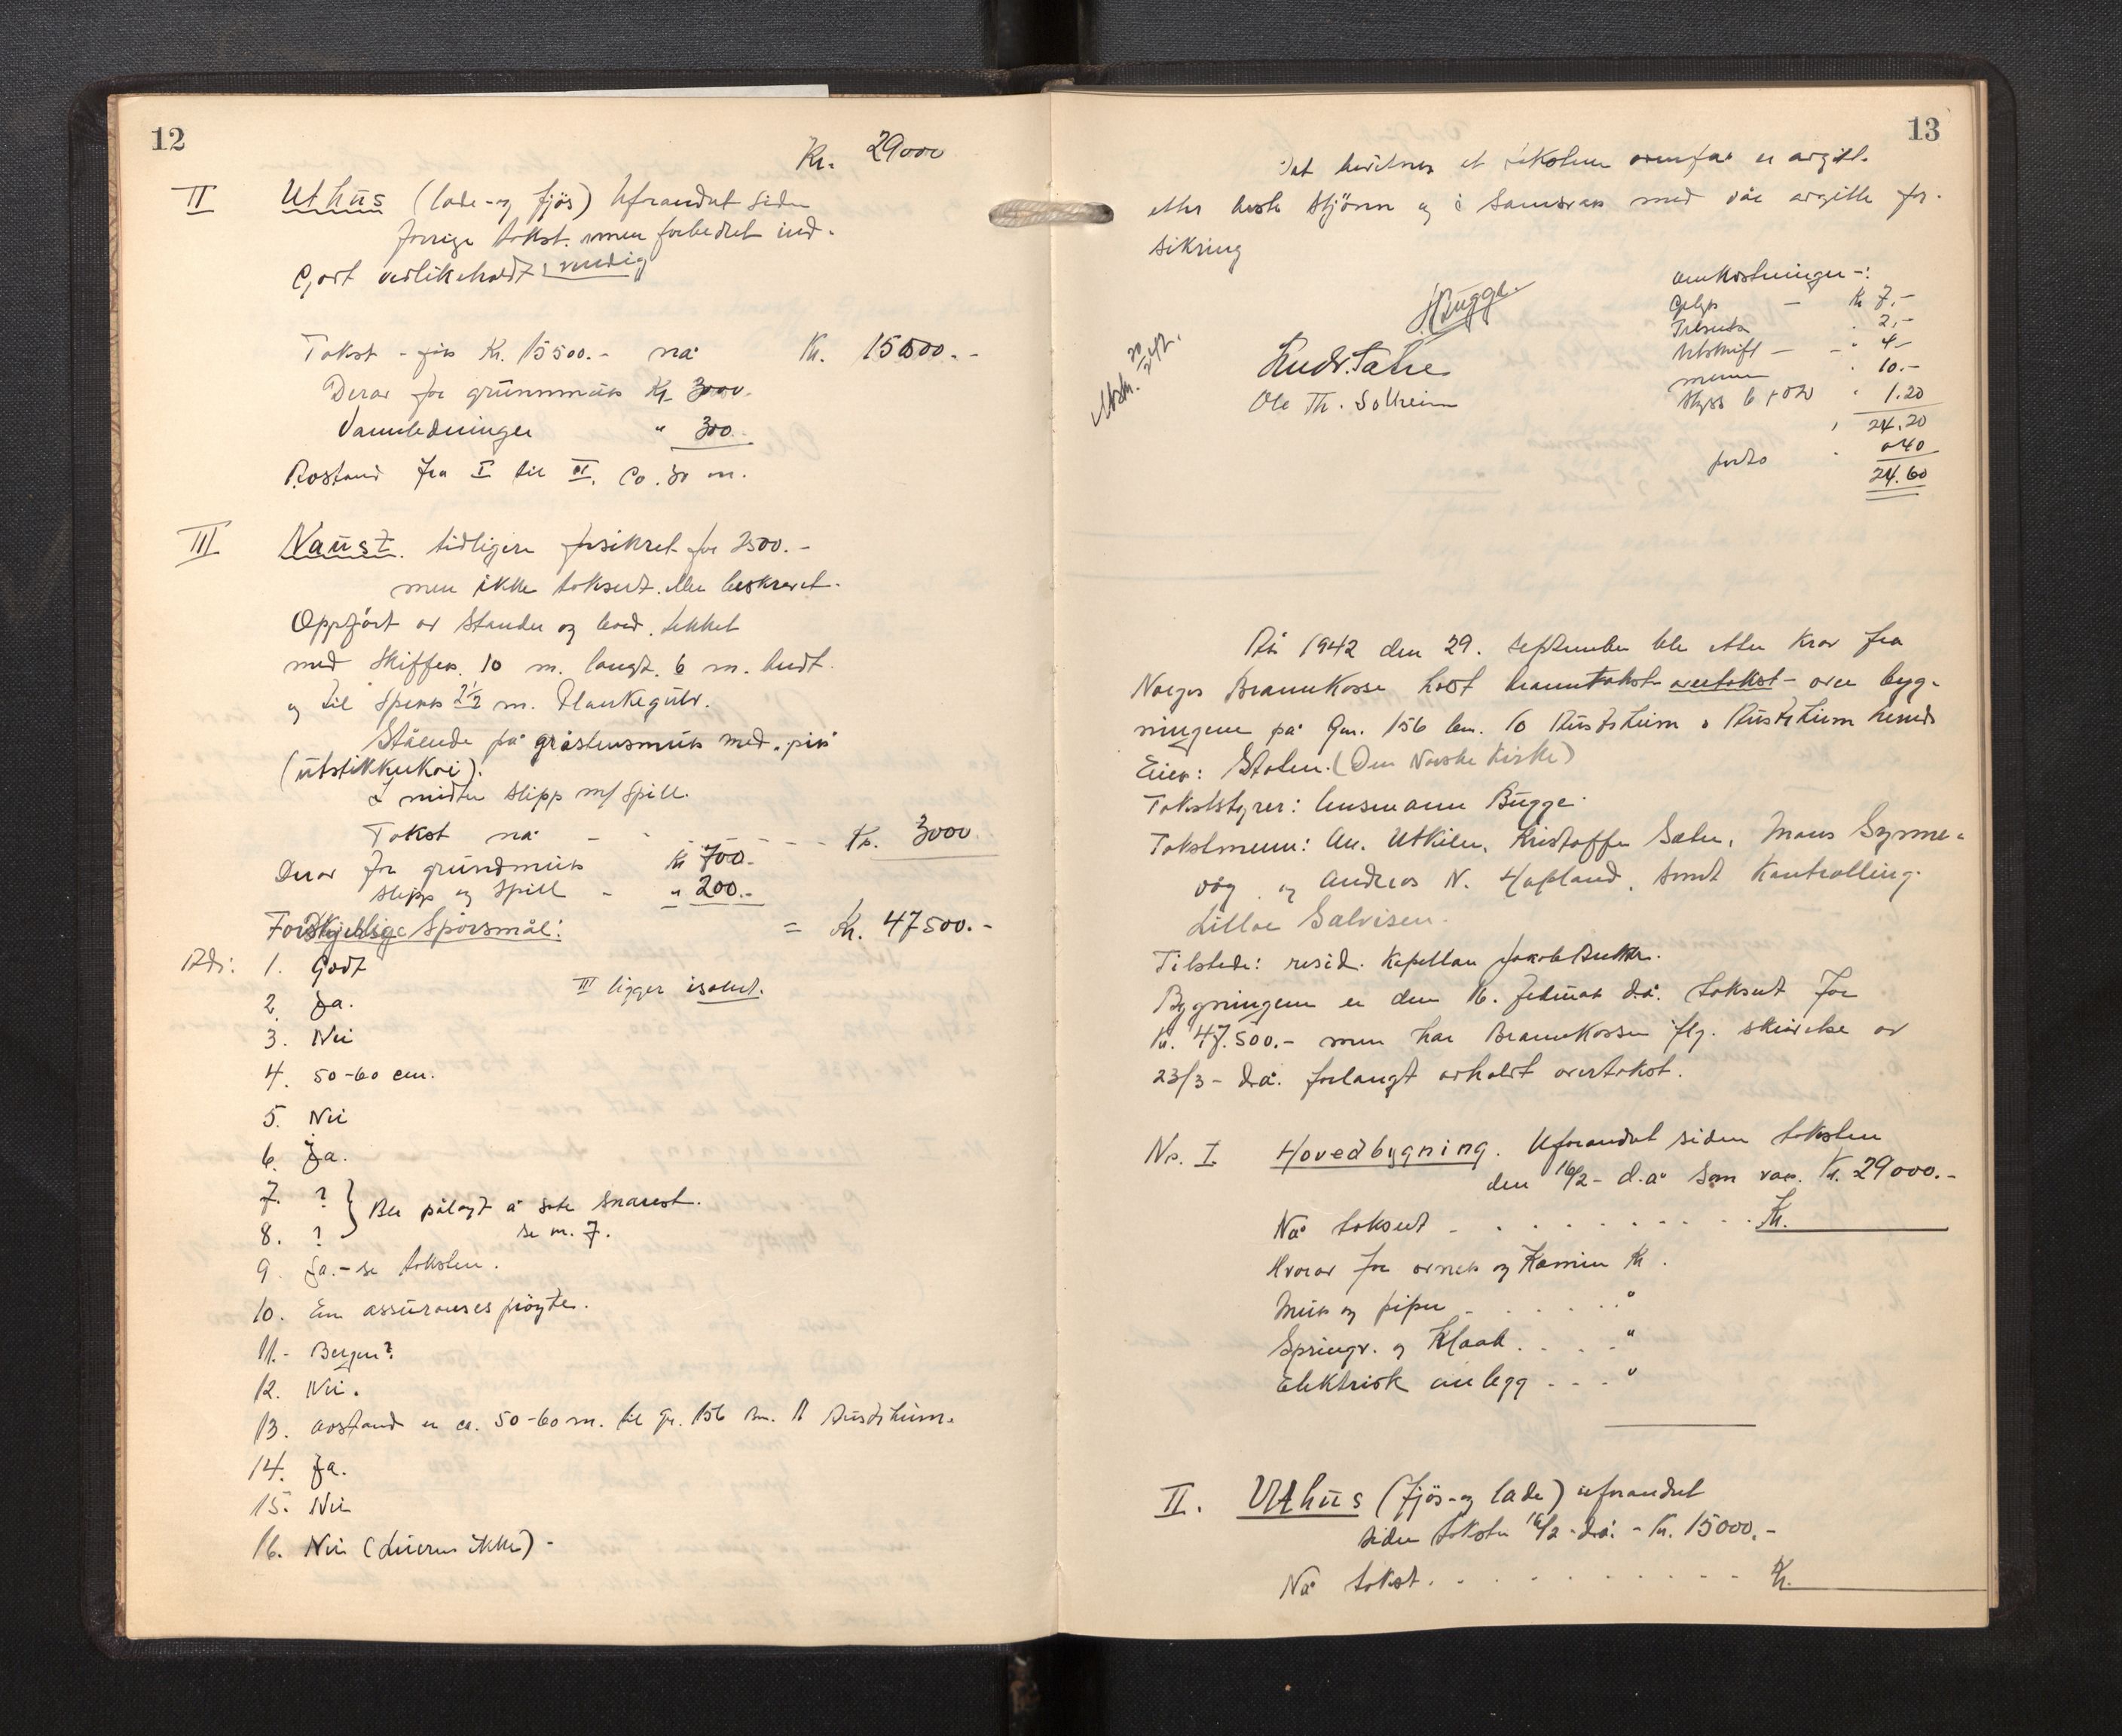 12
Kr. 29000
II Uthus (lade- og fjös) Uforandret siden
forrige takst. men forbedret ind-
Gott vedlikeholdt vendig
Takst - för Kr. 15500.- nå Kr. 15500.-
Derav for grunnmur Kr. 3000.
Vannledninger " 300.-
Avstand fra I til II. ca. 30 m.
III Naust. tidligere forsikret for 2500.-
men ikke taksert eller beskrevet.
Oppfört av stender og bord. tekket
med skiffer. 10 m. langt. 6 m. bredt.
og til sperr 2 1/2 m. Plankegulv.
Stående på gråstensmur med "pir"
(utstikkerkai).
I midten slipp m/ Spill.
Takst nå - - - - Kr. 3000
Derav for grundmur Kr 700.-
slipp og spill - " 200.-
Forskjellige Spörsmål: = Kr. 47500.-
Adr: 1. Godt
III ligger isolert.
2. Ja.
3. Nei
4. 50-60 cm.
5. Nei
6. Ja.
7. ? } Ble pålagt å sote snarest.
8. ? se nr. 7.
9. Ja. - se taksten.
10. En assurances pröyte.
11.- Bergen?
12. Nei.
13. avstand er ca. 50-60 m. til Gr. 156 Bn. 11
14. Ja.
15. Nei
16. Nei (Luer ikke) -
13
Det bevitnes at taksten ovenfor er avgitt
etter beste skjönn og i samsvar med vår avgitte for-
sikring
HBugge.
Ole Th. Solheim
Omkostninger -:
Kr 7.-
2.-
Utskrift - - " 4-
menn " 10.-
Skyss 1.20
24.20
porto - 0.40
24.60
År 1942 den 29. september ble etter krav fra
Norges Brannkasse holdt branntakst - overtakst - over byg-
ningene på Gnr. 156 bnr. 10
Eier: Staten. (Den Norske Kirke)
Takststyrer: Lensmann Bugge.
Takstmenn: An. Utkilen, Kristoffer Sæter, Mons Synne-
våg og Andreas N. Hopland, samt Kontrolling.
Lillae Salvisen.
Tilstede: resid. Kapellan Jakob
Bygningene er den 16. februar d.å. taksert for
Kr. 47.500.- men har Brannkassen iflg. skrivelse av
23/3- d.å. forlangt avholdt overtakst.
Nr. I Hovedbygning. Uforandret siden taksten
den 16/2- d.å som var. Kr. 29000.-
Nå taksert - . . . . . . . . Kr.
Hvorav for ovner og Kamin Kr.
Mur og piper - . . . . . "
Springv. og Kloak . . . . "
Elektrisk anlegg - . . . "
II. Uthus (fjös- og lade) uforandret
siden taksten 16/2- d.å. - Kr. 15000.-
Nå takst. . . . . . . . . Kr.